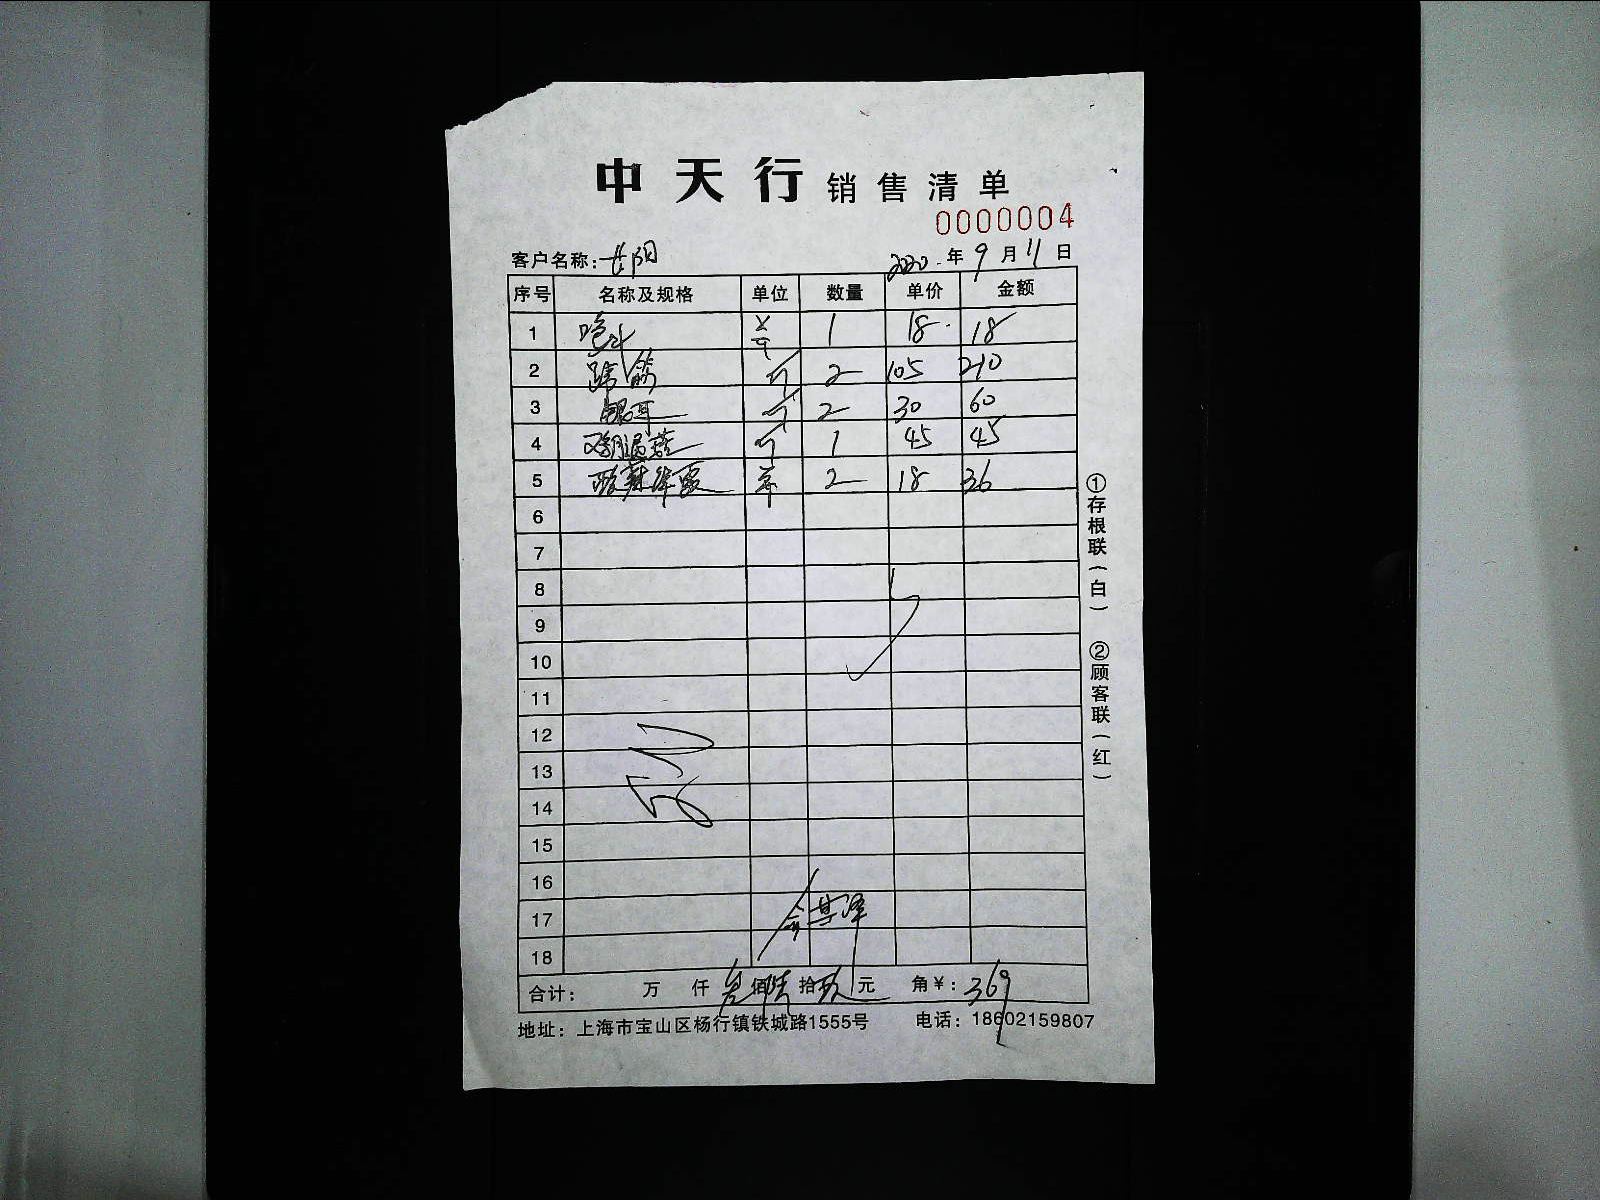 中天行 销售清单
0000004
客户名称: 2020 年 9 月 11 日
序号 名称及规格 单位 数量 单价 金额
1 1 18 18
2 蹄筋 2 105 210
3 银耳 2 30 60
4 1 45 45
5 2 18 36
6
7
8
9
10
11
12
13
14
15
16
17
18
合计: 万 仟 叁佰陆拾玖元 角 ¥: 369
地址: 上海市宝山区杨行镇铁城路1555号 电话: 18602159807
①存根联(白) ②顾客联(红)